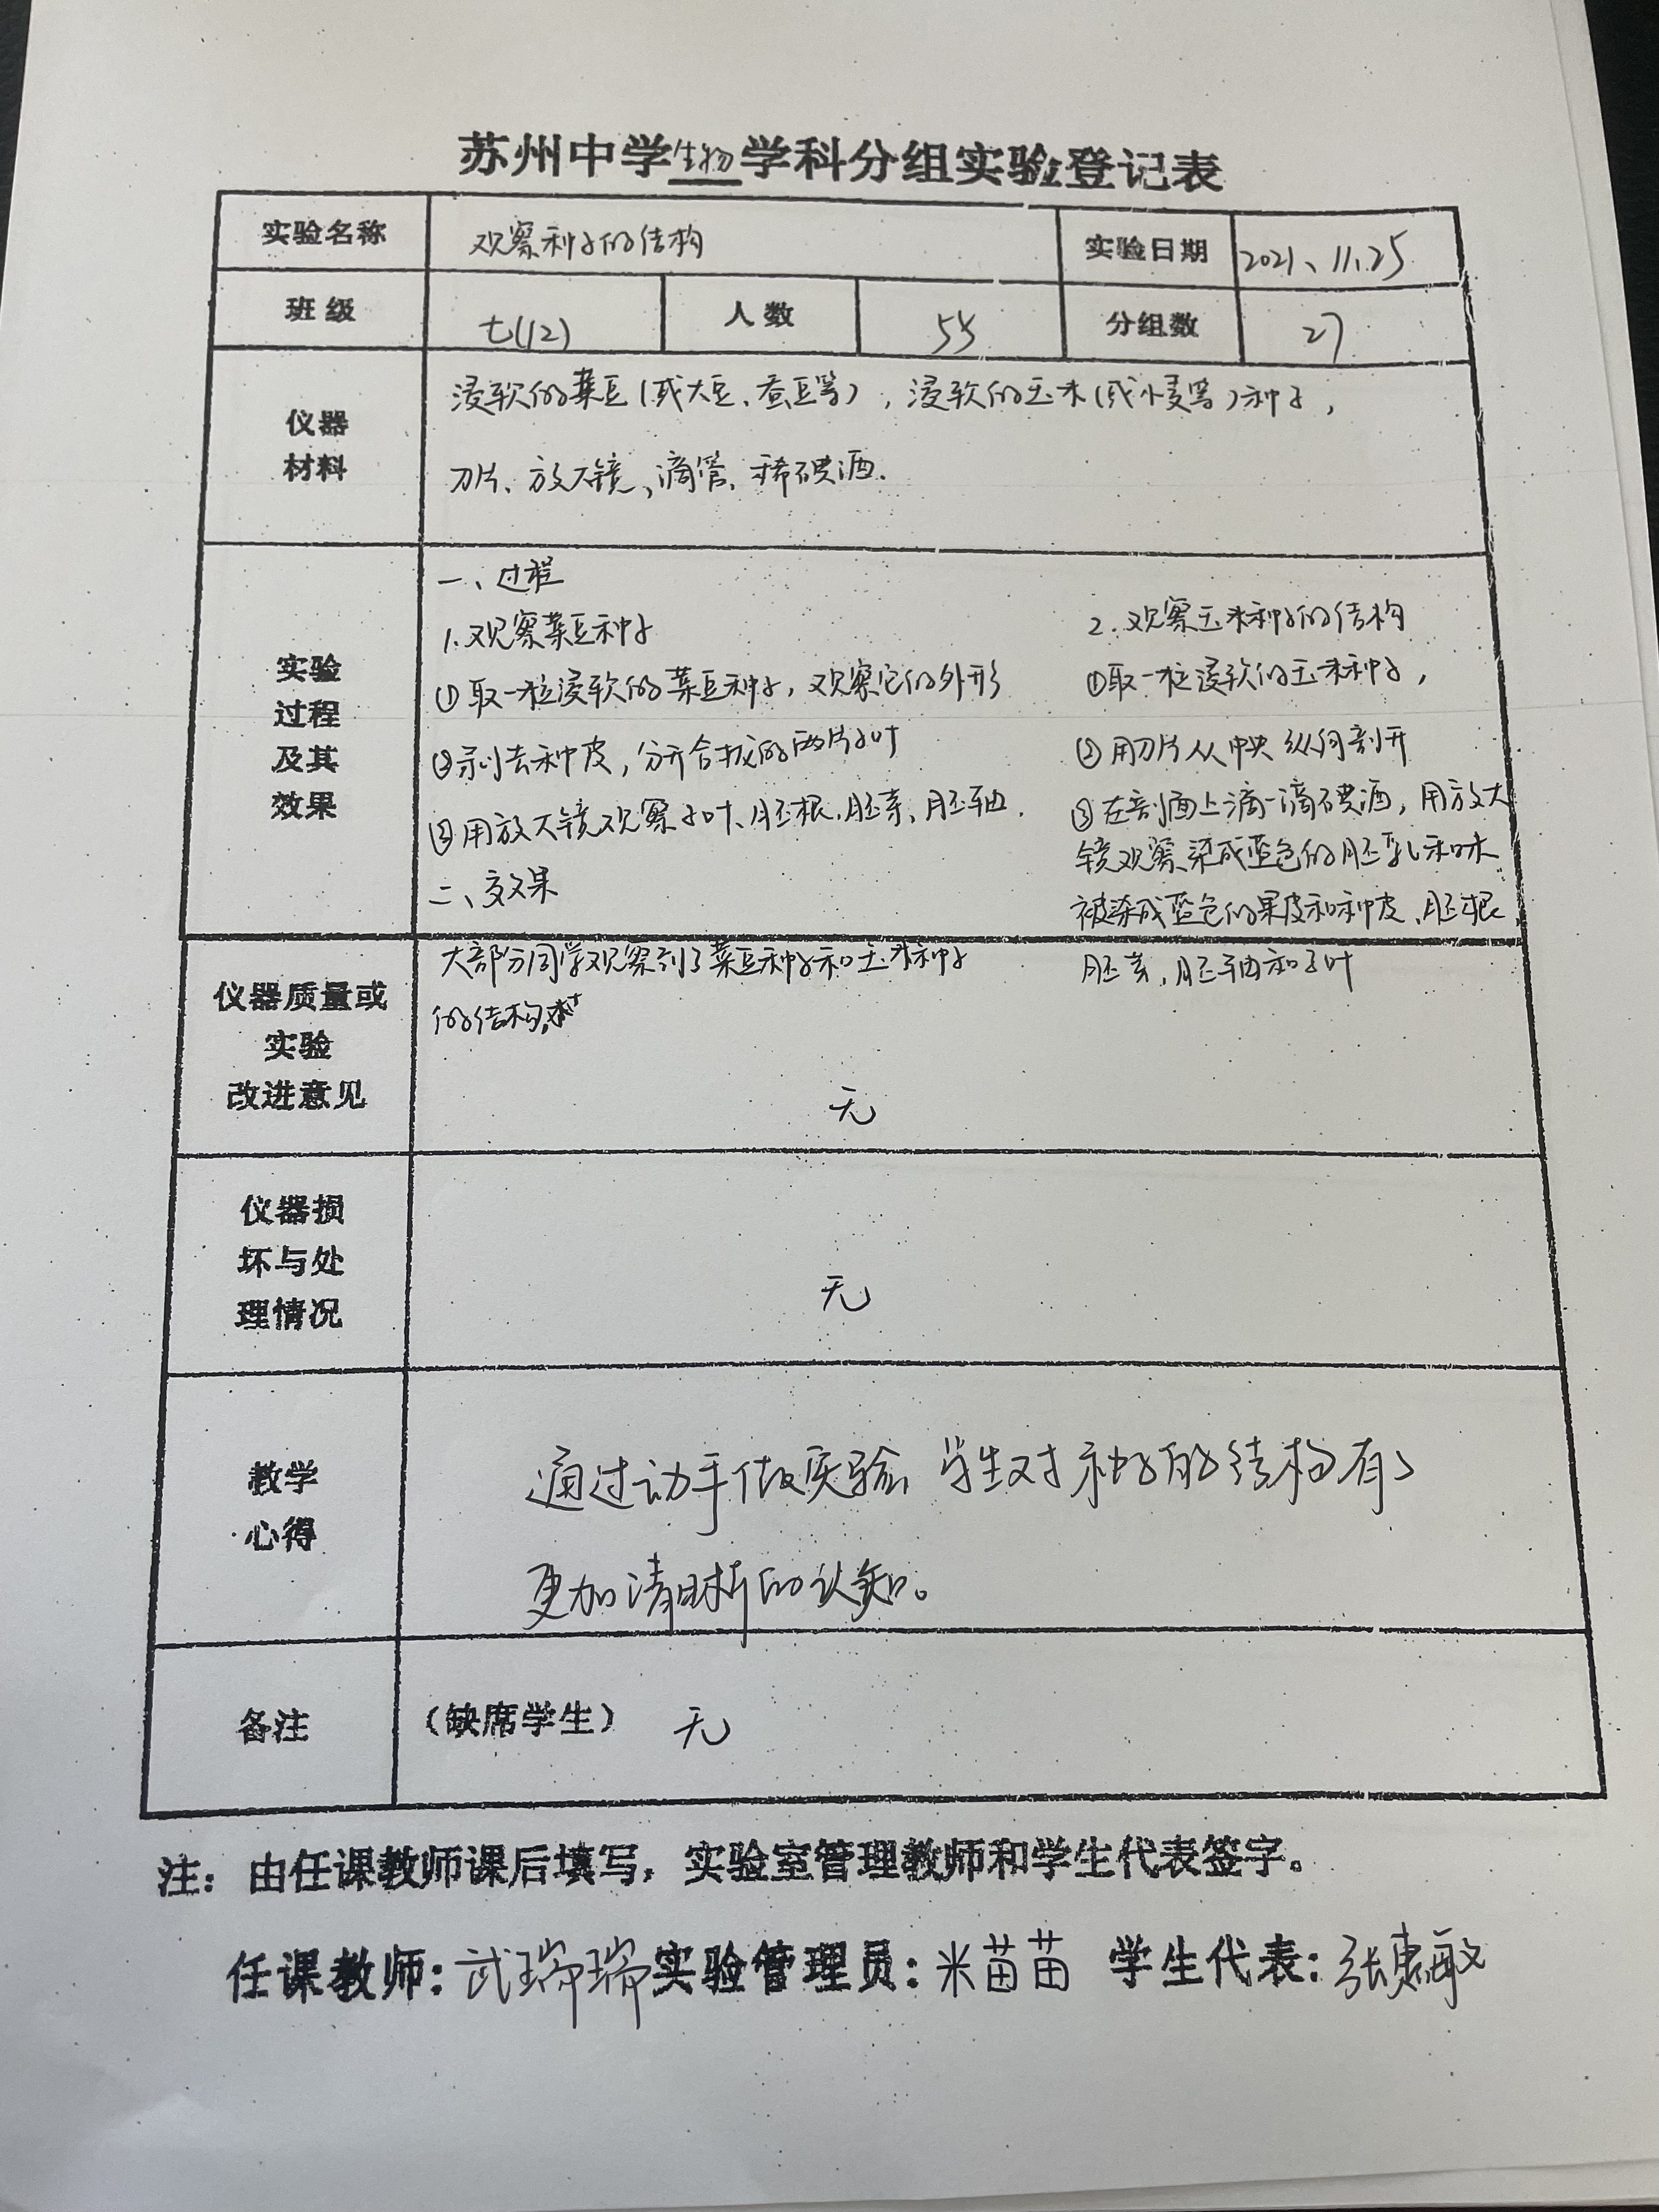 苏州中学生物学科分组实验登记表
实验名称 观察种子的结构 实验日期 2021、11.25
班级 七(12) 人数 55 分组数 27
仪器
材料
浸软的菜豆(或大豆、蚕豆等),浸软的玉米(或小麦等)种子,
刀片、放大镜、滴管、稀碘酒.
实验
过程
及其
效果
一、过程
1.观察菜豆种子
①取一粒浸软的菜豆种子,观察它的外形
②剥去种皮,分开合拢的两片子叶
③用放大镜观察子叶、胚根、胚芽、胚轴.
二、效果
大部分同学观察到了菜豆种子和玉米种子
的结构
2.观察玉米种子的结构
①取一粒浸软的玉米种子,
②用刀片从中央纵向剖开
③在剖面上滴一滴碘酒,用放大
镜观察染成蓝色的胚乳和未
被染成蓝色的果皮和种皮、胚根
胚芽,胚轴和子叶
仪器质量或
实验
改进意见
无
仪器损
坏与处
理情况
无
教学
心得
通过动手做实验,学生对种子的结构有了
更加清晰的认知。
备注 (缺席学生) 无
注:由任课教师课后填写,实验室管理教师和学生代表签字。
任课教师:武瑞瑞 实验管理员:米苗苗 学生代表:张惠敏